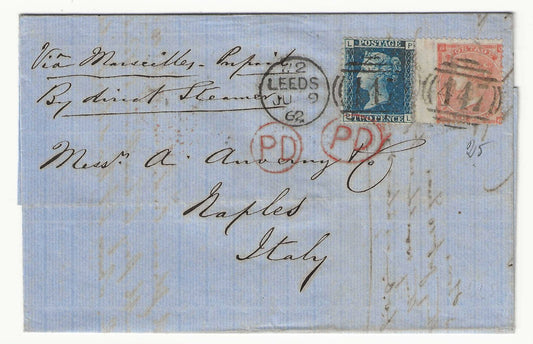 Via Marseilles - Prepaid
By direct Steamer
82
LEEDS
JU 9
62
L P
POSTAGE
TWO PENCE
447
PD
PD
25
Messrs A. & Co
Naples
Italy